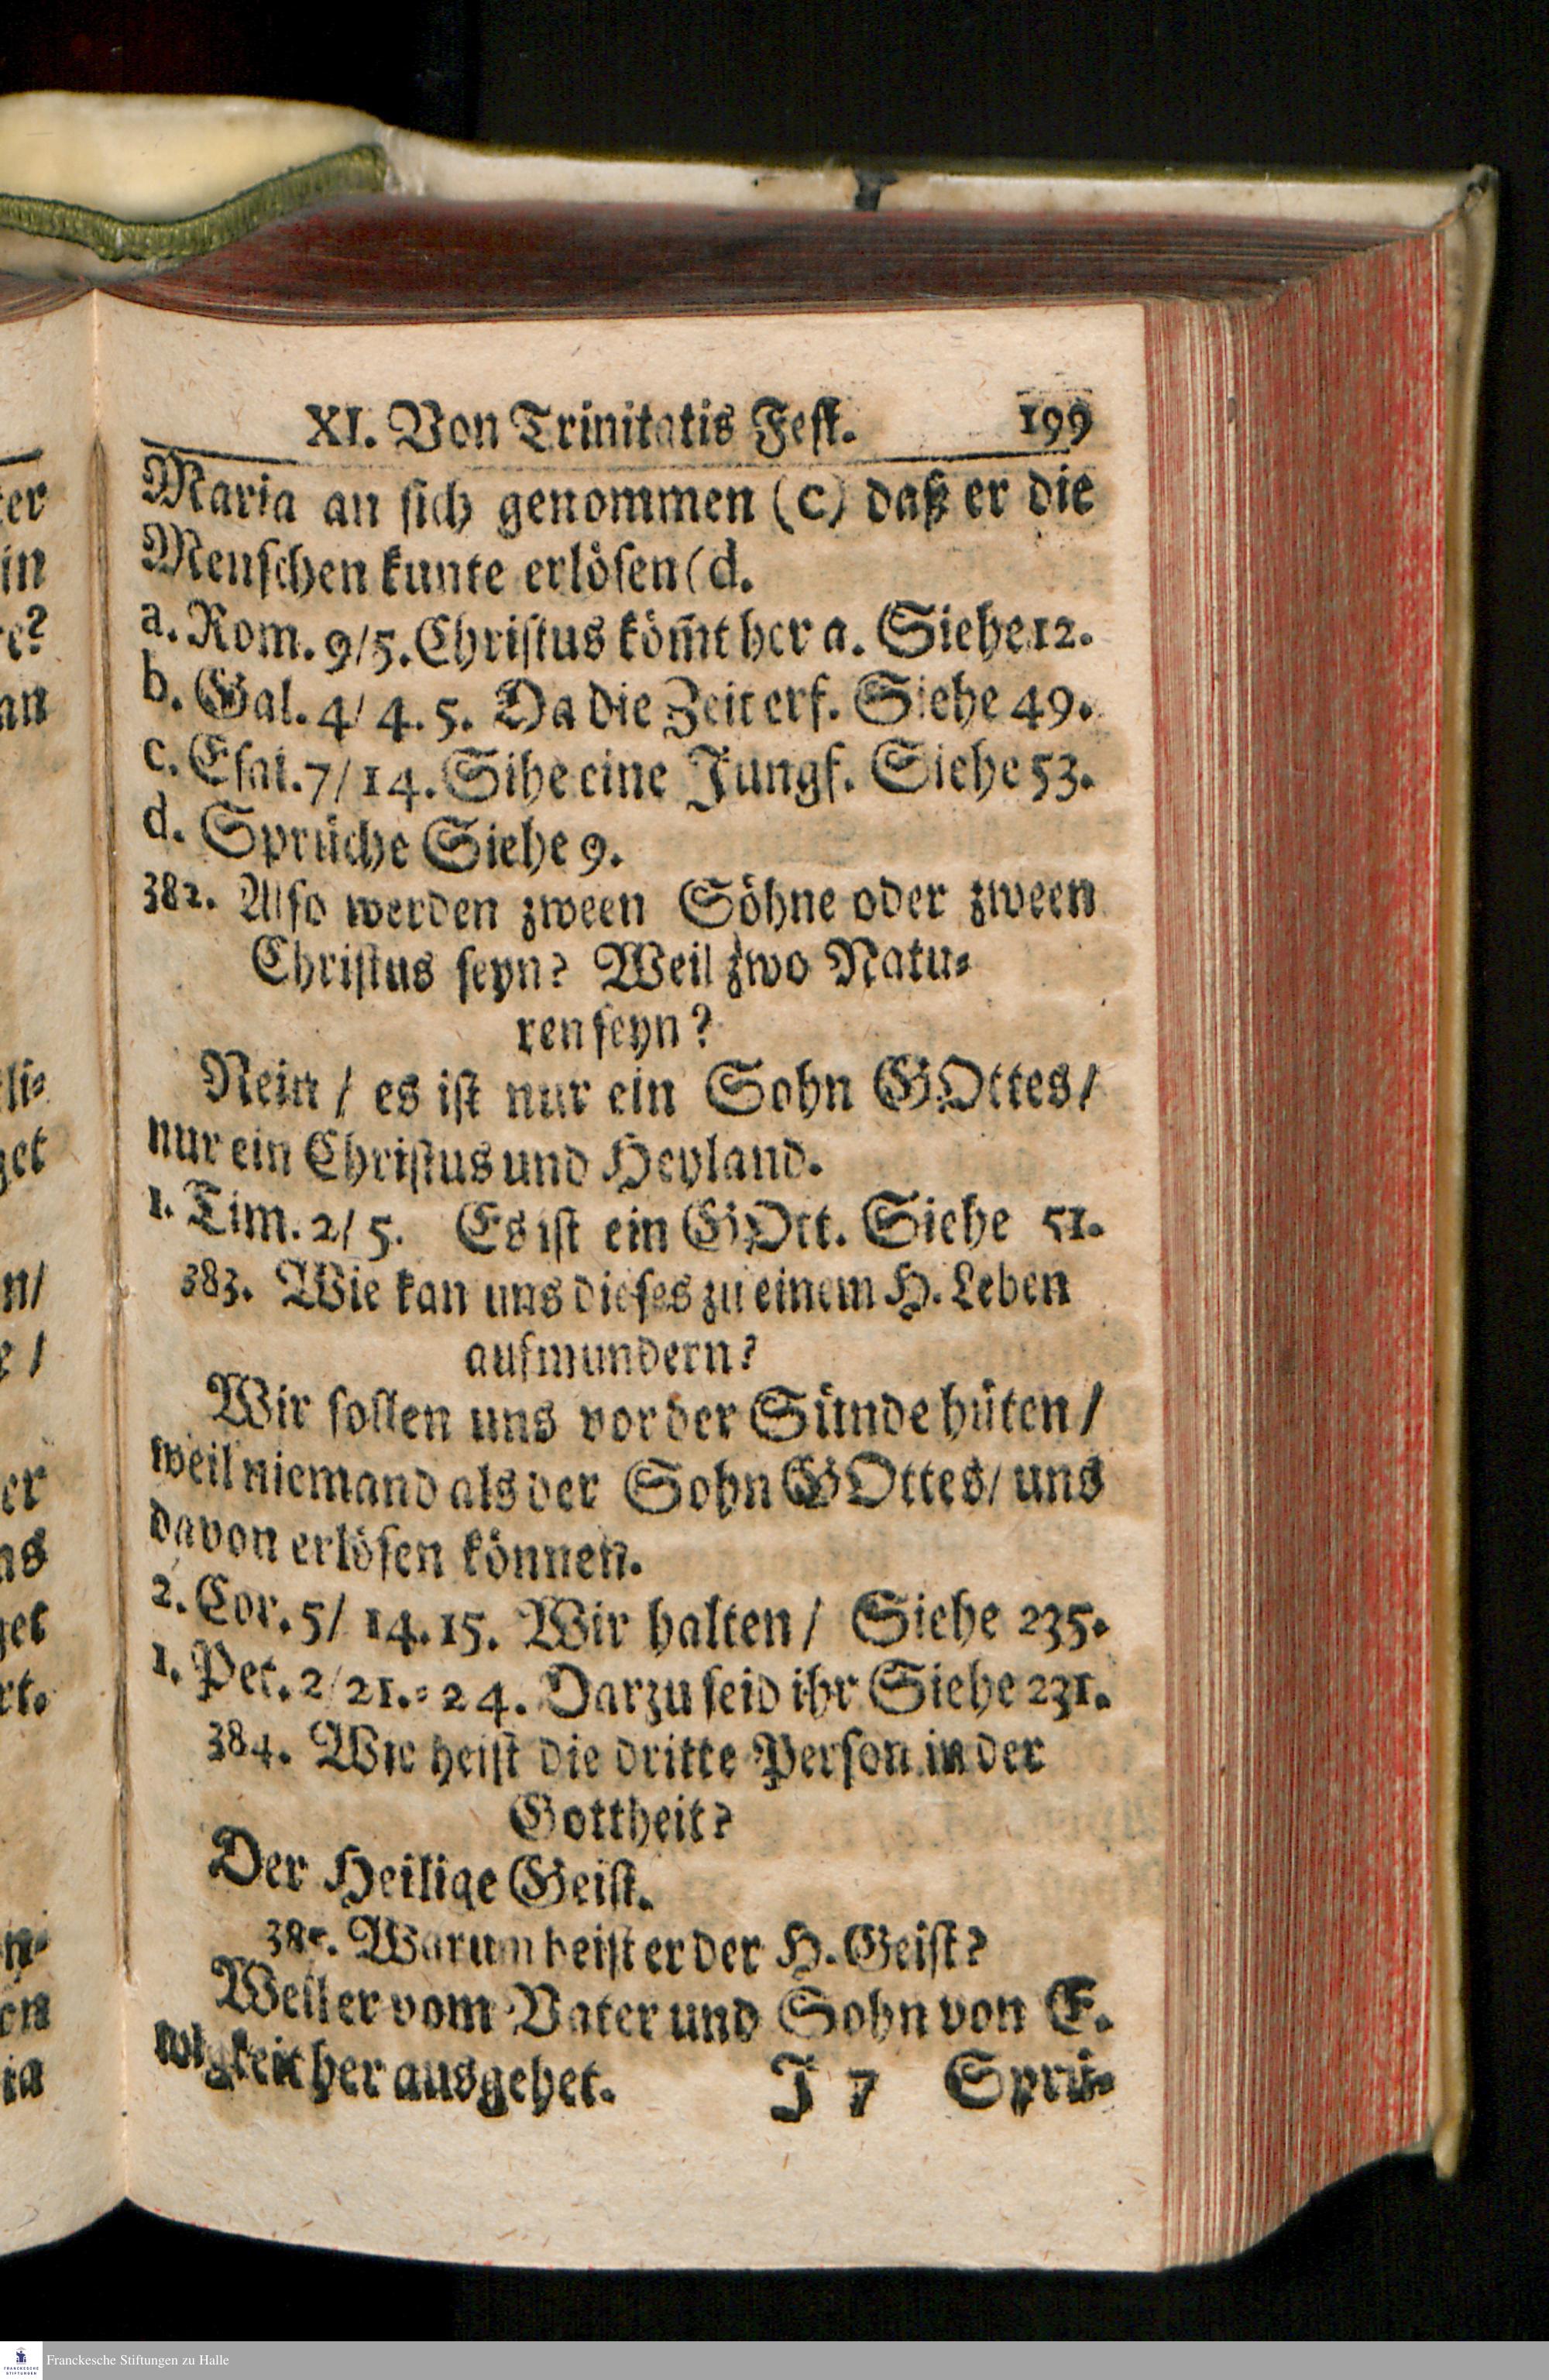 XI. Von Trinitatis Fest. 199
Maria an sich genommen (c) daß er die
Menschen kunte erlösen (d.
a. Rom. 9/5. Christus köm̃t her a. Siehe 12.
b. Gal. 4/ 4. 5. Da die Zeit erf. Siehe 49.
c. Esai. 7/ 14. Sihe eine Jungf. Siehe 53.
d. Sprüche Siehe 9.
382. Also werden zween Söhne oder zween
Christus seyn? Weil zwo Natu⸗
ren seyn?
Nein / es ist nur ein Sohn GOttes/
nur ein Christus und Heyland.
1. Tim. 2/ 5. Es ist ein GOtt. Siehe 51.
383. Wie kan uns dieses zu einem H. Leben
aufmundern?
Wir sollen uns vor der Sünde hüten /
weil niemand als der Sohn GOttes/ uns
davon erlösen können.
2. Cor. 5/ 14. 15. Wir halten / Siehe 235.
1. Pet. 2/ 21.⸗24. Darzu seid ihr Siehe 231.
384. Wie heist die dritte Person in der
Gottheit?
Der Heilige Geist.
385. Warum heist er der H. Geist?
Weil er vom Vater und Sohn von E⸗
wigkeit her ausgehet. J 7 Sprü⸗
Franckesche Stiftungen zu Halle